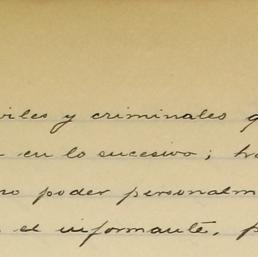 viles y criminales q
en lo sucesivo; tra
ro poder personalm
el informante, p